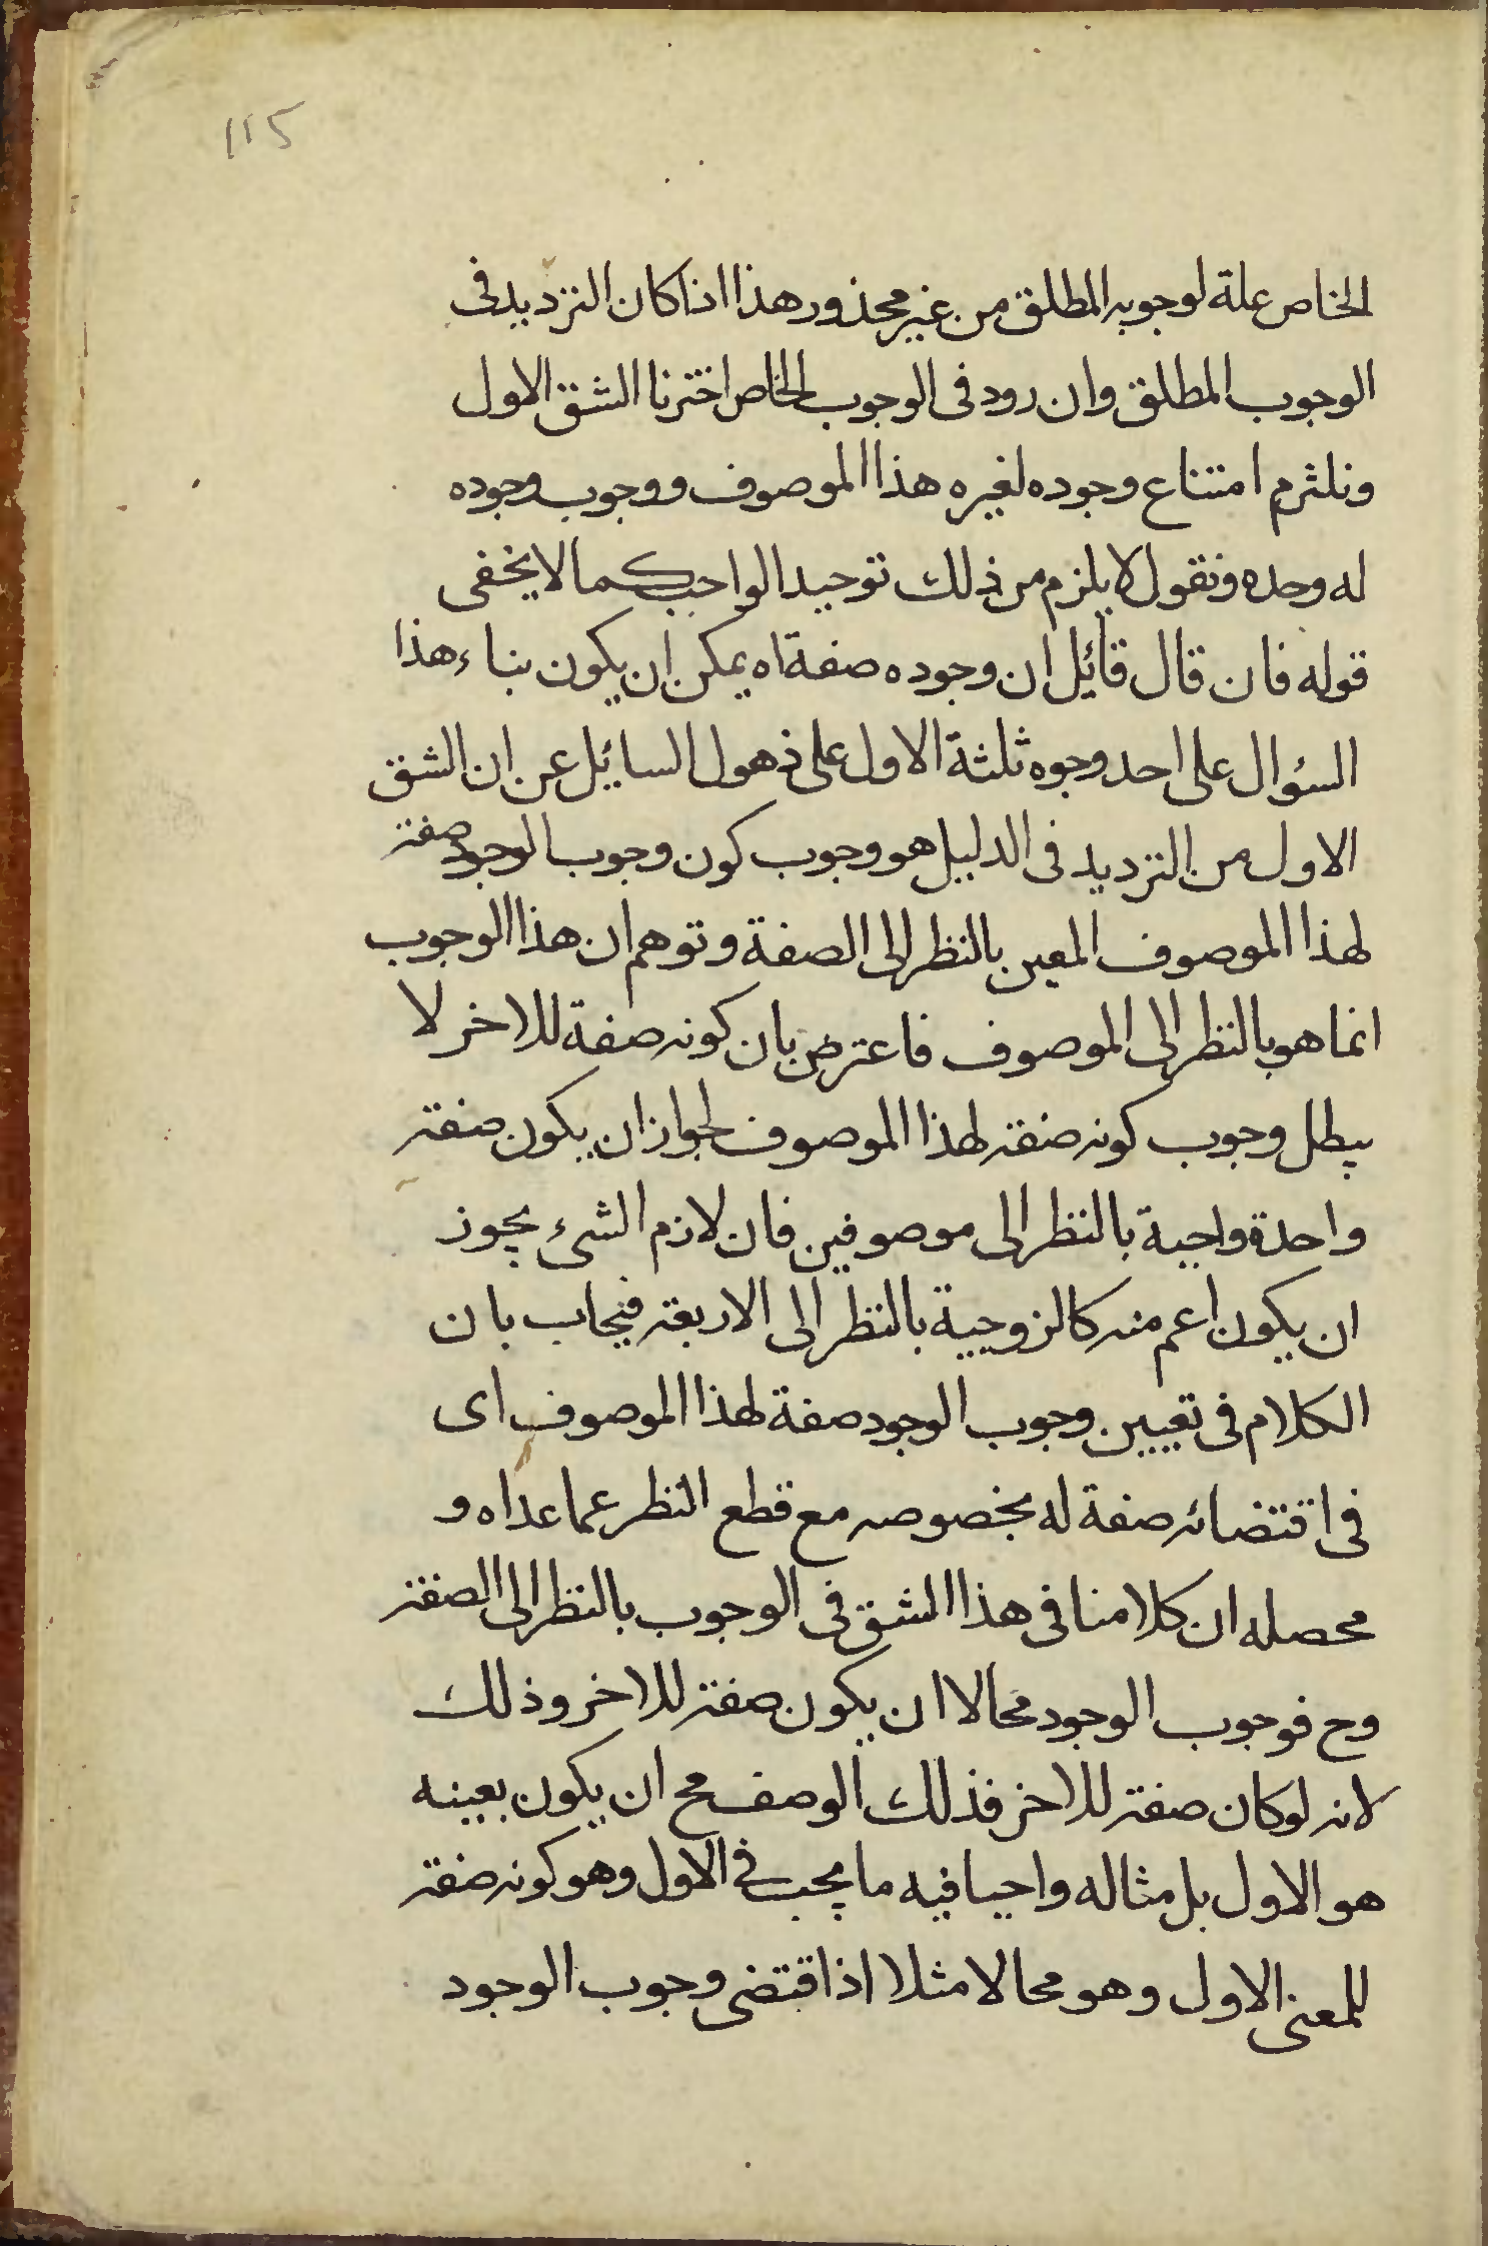 115
الخاص علة لوجوبه المطلق من غير محذور هذا اذا كان الترديد فى
الوجوب المطلق وان رود فى الوجوب الخاص اخترنا الشق الاول
ونلتزم امتناع وجوده لغيره هذا الموصوف ووجوب وجوده
له وحده ونقول لا يلزم من ذلك توحيد الواجب كما لا يخفى
قوله فان قال قائيل ان وجوده صفة اه يمكن ان يكون بناء هذا
السؤال على احد وجوه ثلثة الاول على ذهول السائيل عن ان الشق
الاول من الترديد فى الدليل هو وجوب كون وجوب الوجود صفته
لهذا الموصوف المعين بالنظر الى الصفة وتوهم ان هذا الوجوب
انما هو بالنظر الى الموصوف فاعترض بان كونه صفة للاخر لا
يبطل وجوب كونه صفته لهذا الموصوف لجواز ان يكون صفته
واحدة واجبة بالنظر الى موصوفين فان لازم الشىء يجوز
ان يكون اعم منه كالزوجية بالنظر الى الاربعة فيجاب بان
الكلام فى تعيين وجوب الوجود صفة لهذا الموصوف اى
فى اقتضائه صفة له بخصوصه مع قطع النظر عما عداه و
محصله ان كلامنا فى هذا الشق فى الوجوب بالنظر الى الصفة
وح فوجوب الوجود محالا ان يكون صفته للاخر وذلك
لانه لو كان صفته للاخر فذلك الوصف مح ان يكون بعينه
هو الاول بل مثاله واجبا فيه ما يجب فى الاول وهو كونه صفته
للمعنى الاول وهو محالا مثلا اذا قتضى وجوب الوجود